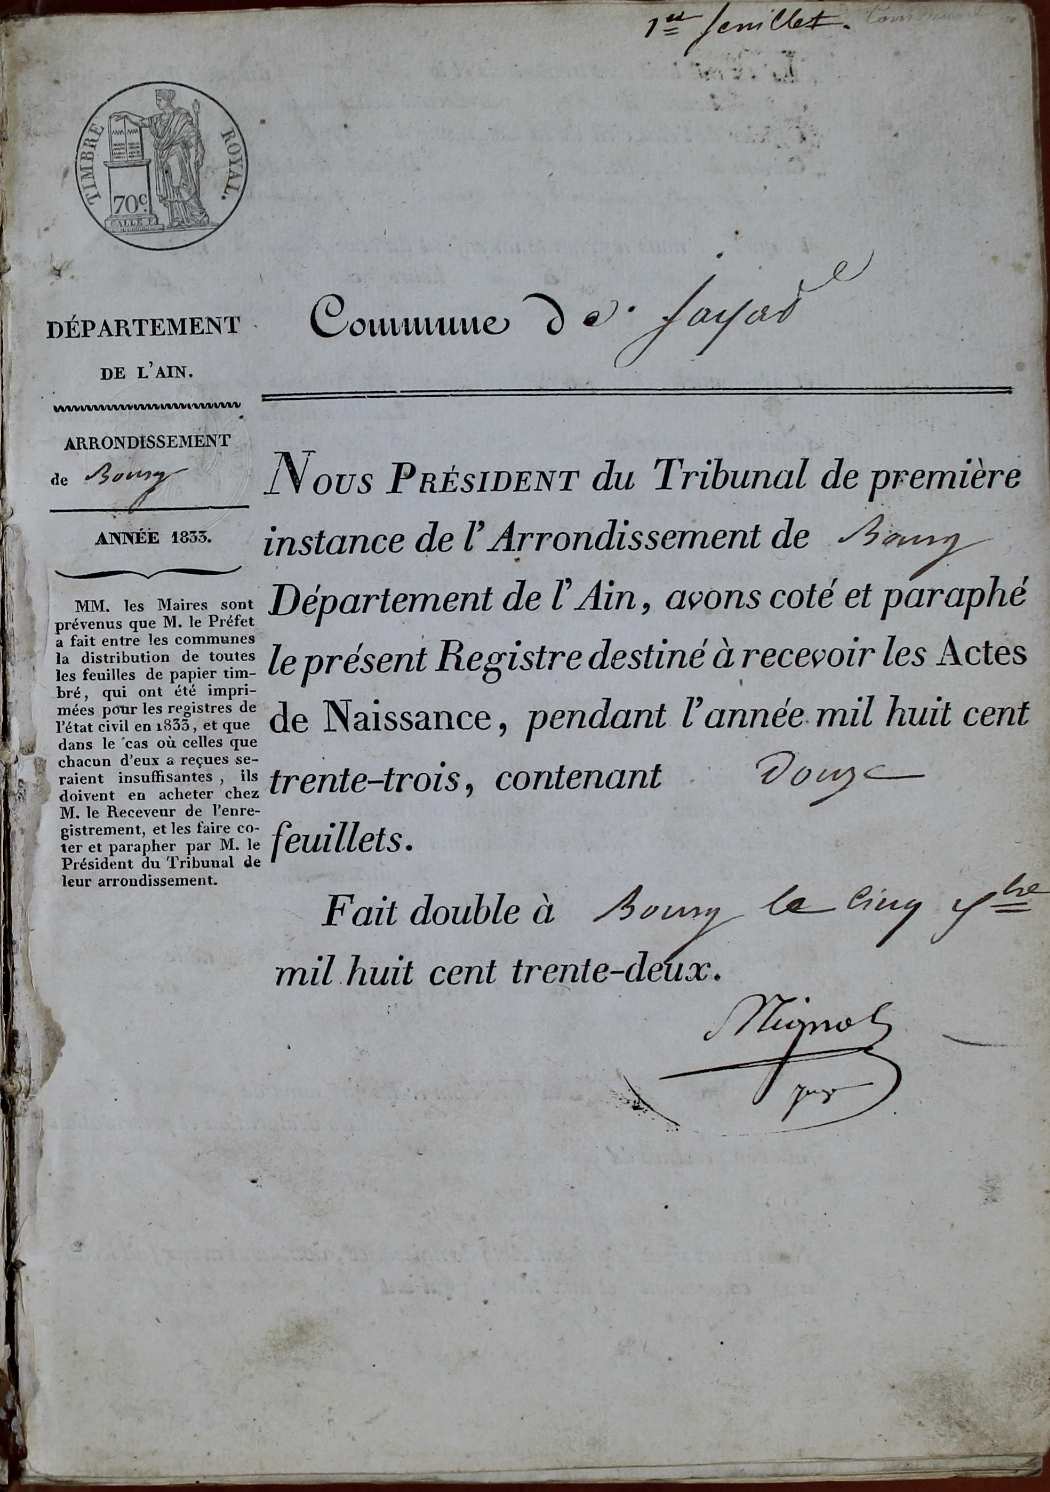 1er feuillet.
TIMBRE ROYAL.
70c.
DÉPARTEMENT
DE L'AIN.
ARRONDISSEMENT
de Bourg
ANNÉE 1833.
MM. les Maires sont
prévenus que M. le Préfet
a fait entre les communes
la distribution de toutes
les feuilles de papier tim-
bré, qui ont été impri-
mées pour les registres de
l'état civil en 1833, et que
dans le cas où celles que
chacun d'eux a reçues se-
raient insuffisantes, ils
doivent en acheter chez
M. le Receveur de l'enre-
gistrement, et les faire co-
ter et parapher par M. le
Président du Tribunal de
leur arrondissement.
Commune de Jayat
NOUS PRÉSIDENT du Tribunal de première
instance de l'Arrondissement de Bourg
Département de l'Ain, avons coté et paraphé
le présent Registre destiné à recevoir les Actes
de Naissance, pendant l'année mil huit cent
trente-trois, contenant Douze
feuillets.
Fait double à Bourg le cinq xbre
mil huit cent trente-deux.